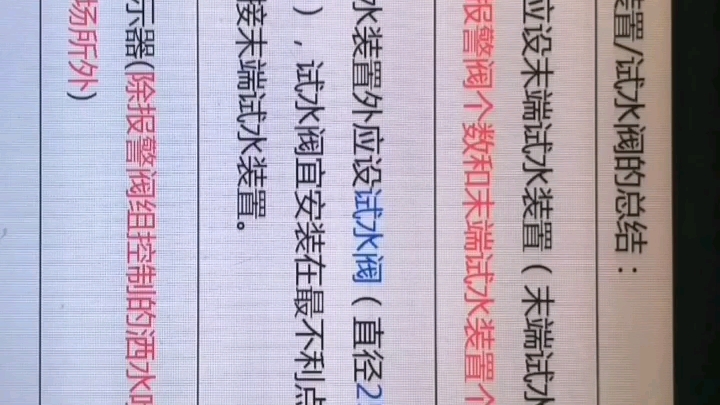 装置/试水阀的总结：
应设末端试水装置（末端试水
报警阀个数和末端试水装置个
水装置外应设试水阀（直径2
），试水阀宜安装在最不利点
接末端试水装置。
示器(除报警阀组控制的洒水
场所外)